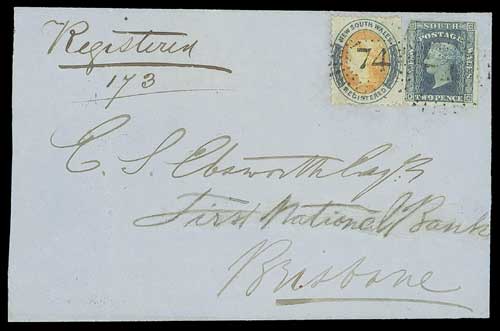 Registered
173
NEW SOUTH WALES
74
REGISTERED
SOUTH
POSTAGE
WALES
TWO PENCE
E. S. Ebsworth Esqr
First National Bank
Brisbane